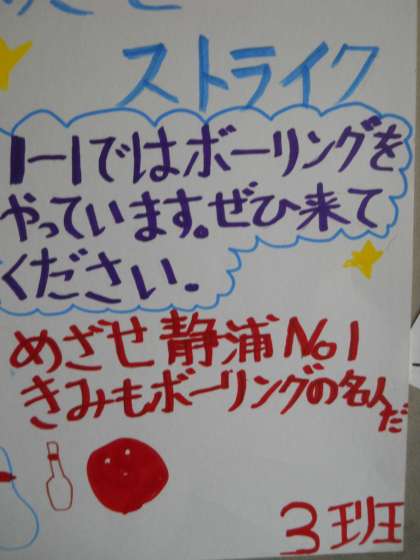 ストライク
1-1ではボーリングを
やっています。ぜひ来て
ください。
めざせ静浦No1
きみもボーリングの名人だ
3班